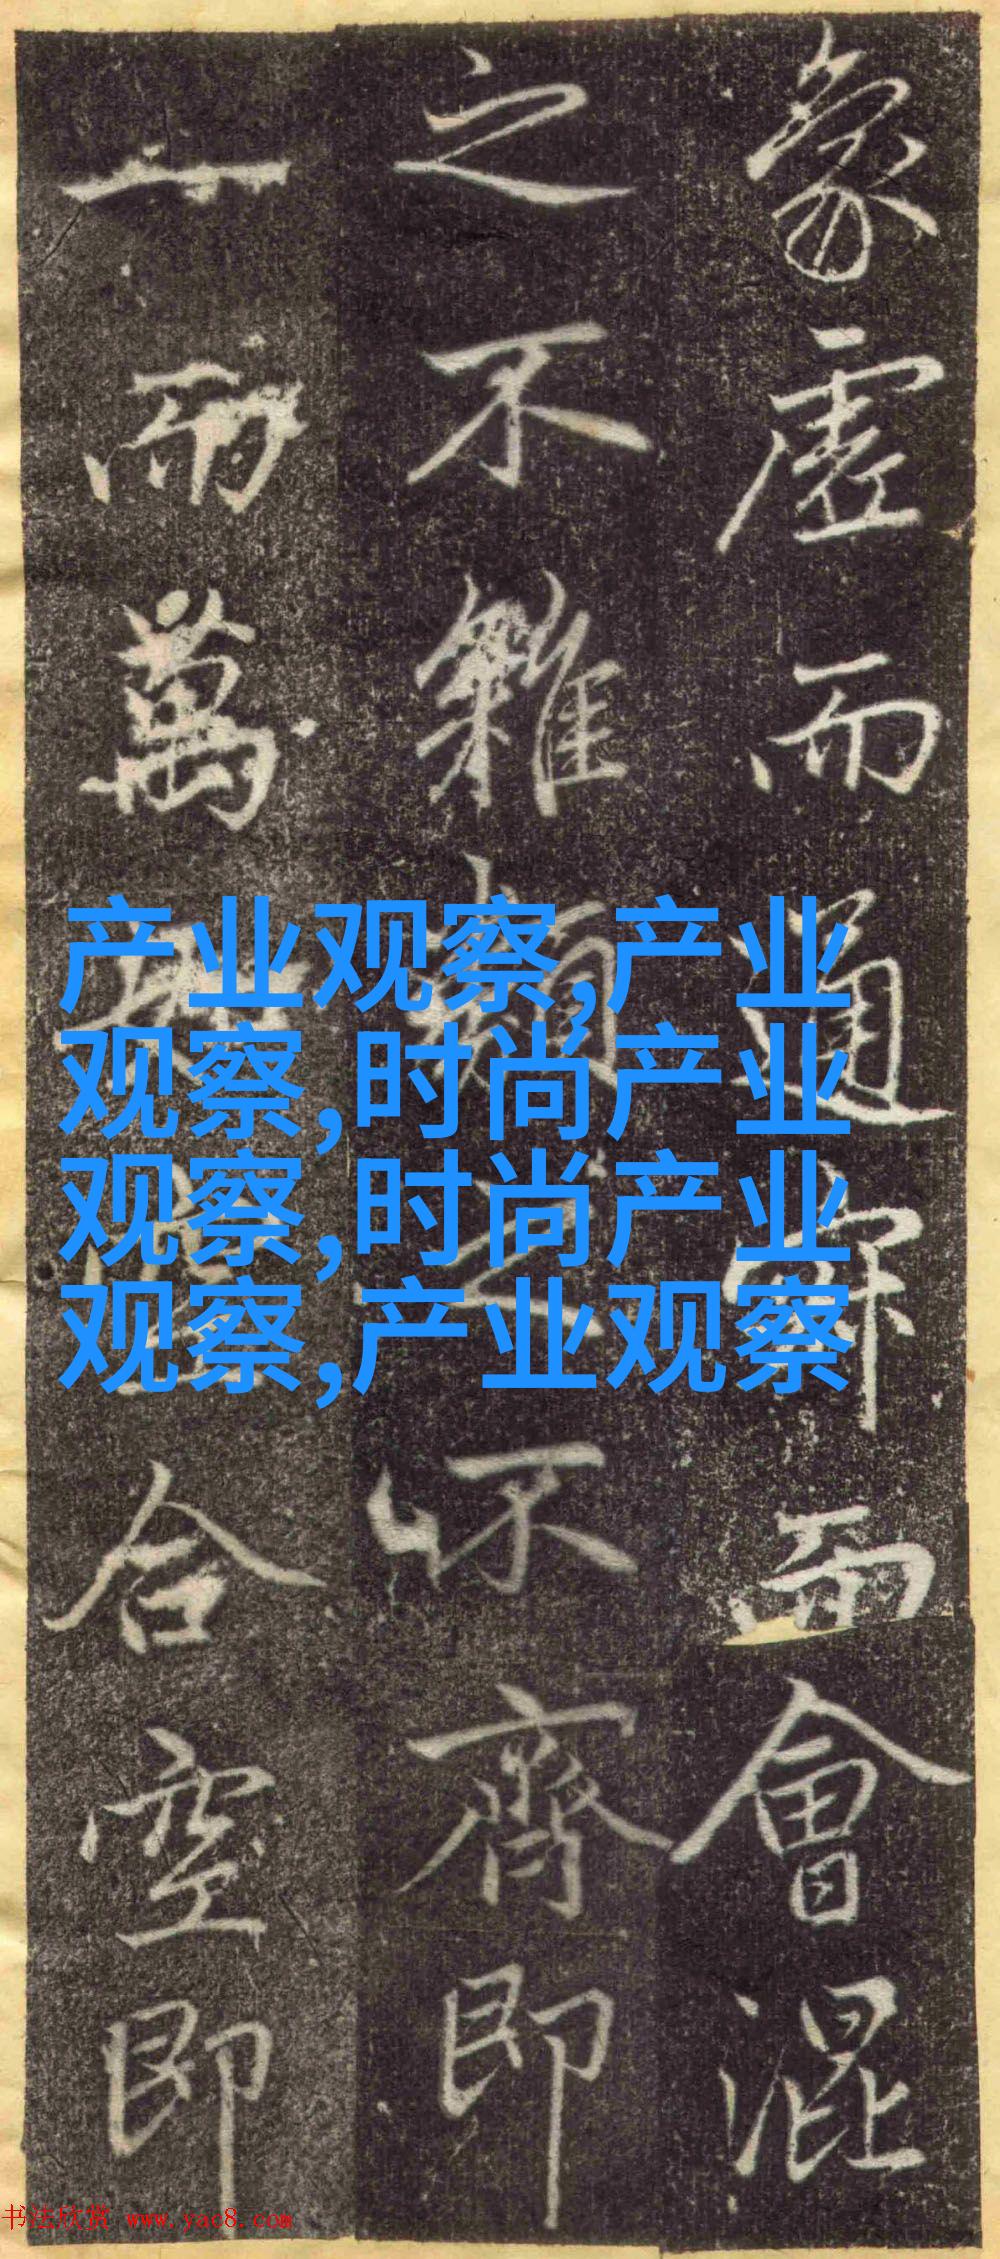 象虛而通而會混
之不雜類之不齊即
一而萬合空即
产业观察,产业
观察,时尚产业
观察,时尚产业
观察,产业观察
书法欣赏 www.yac8.com